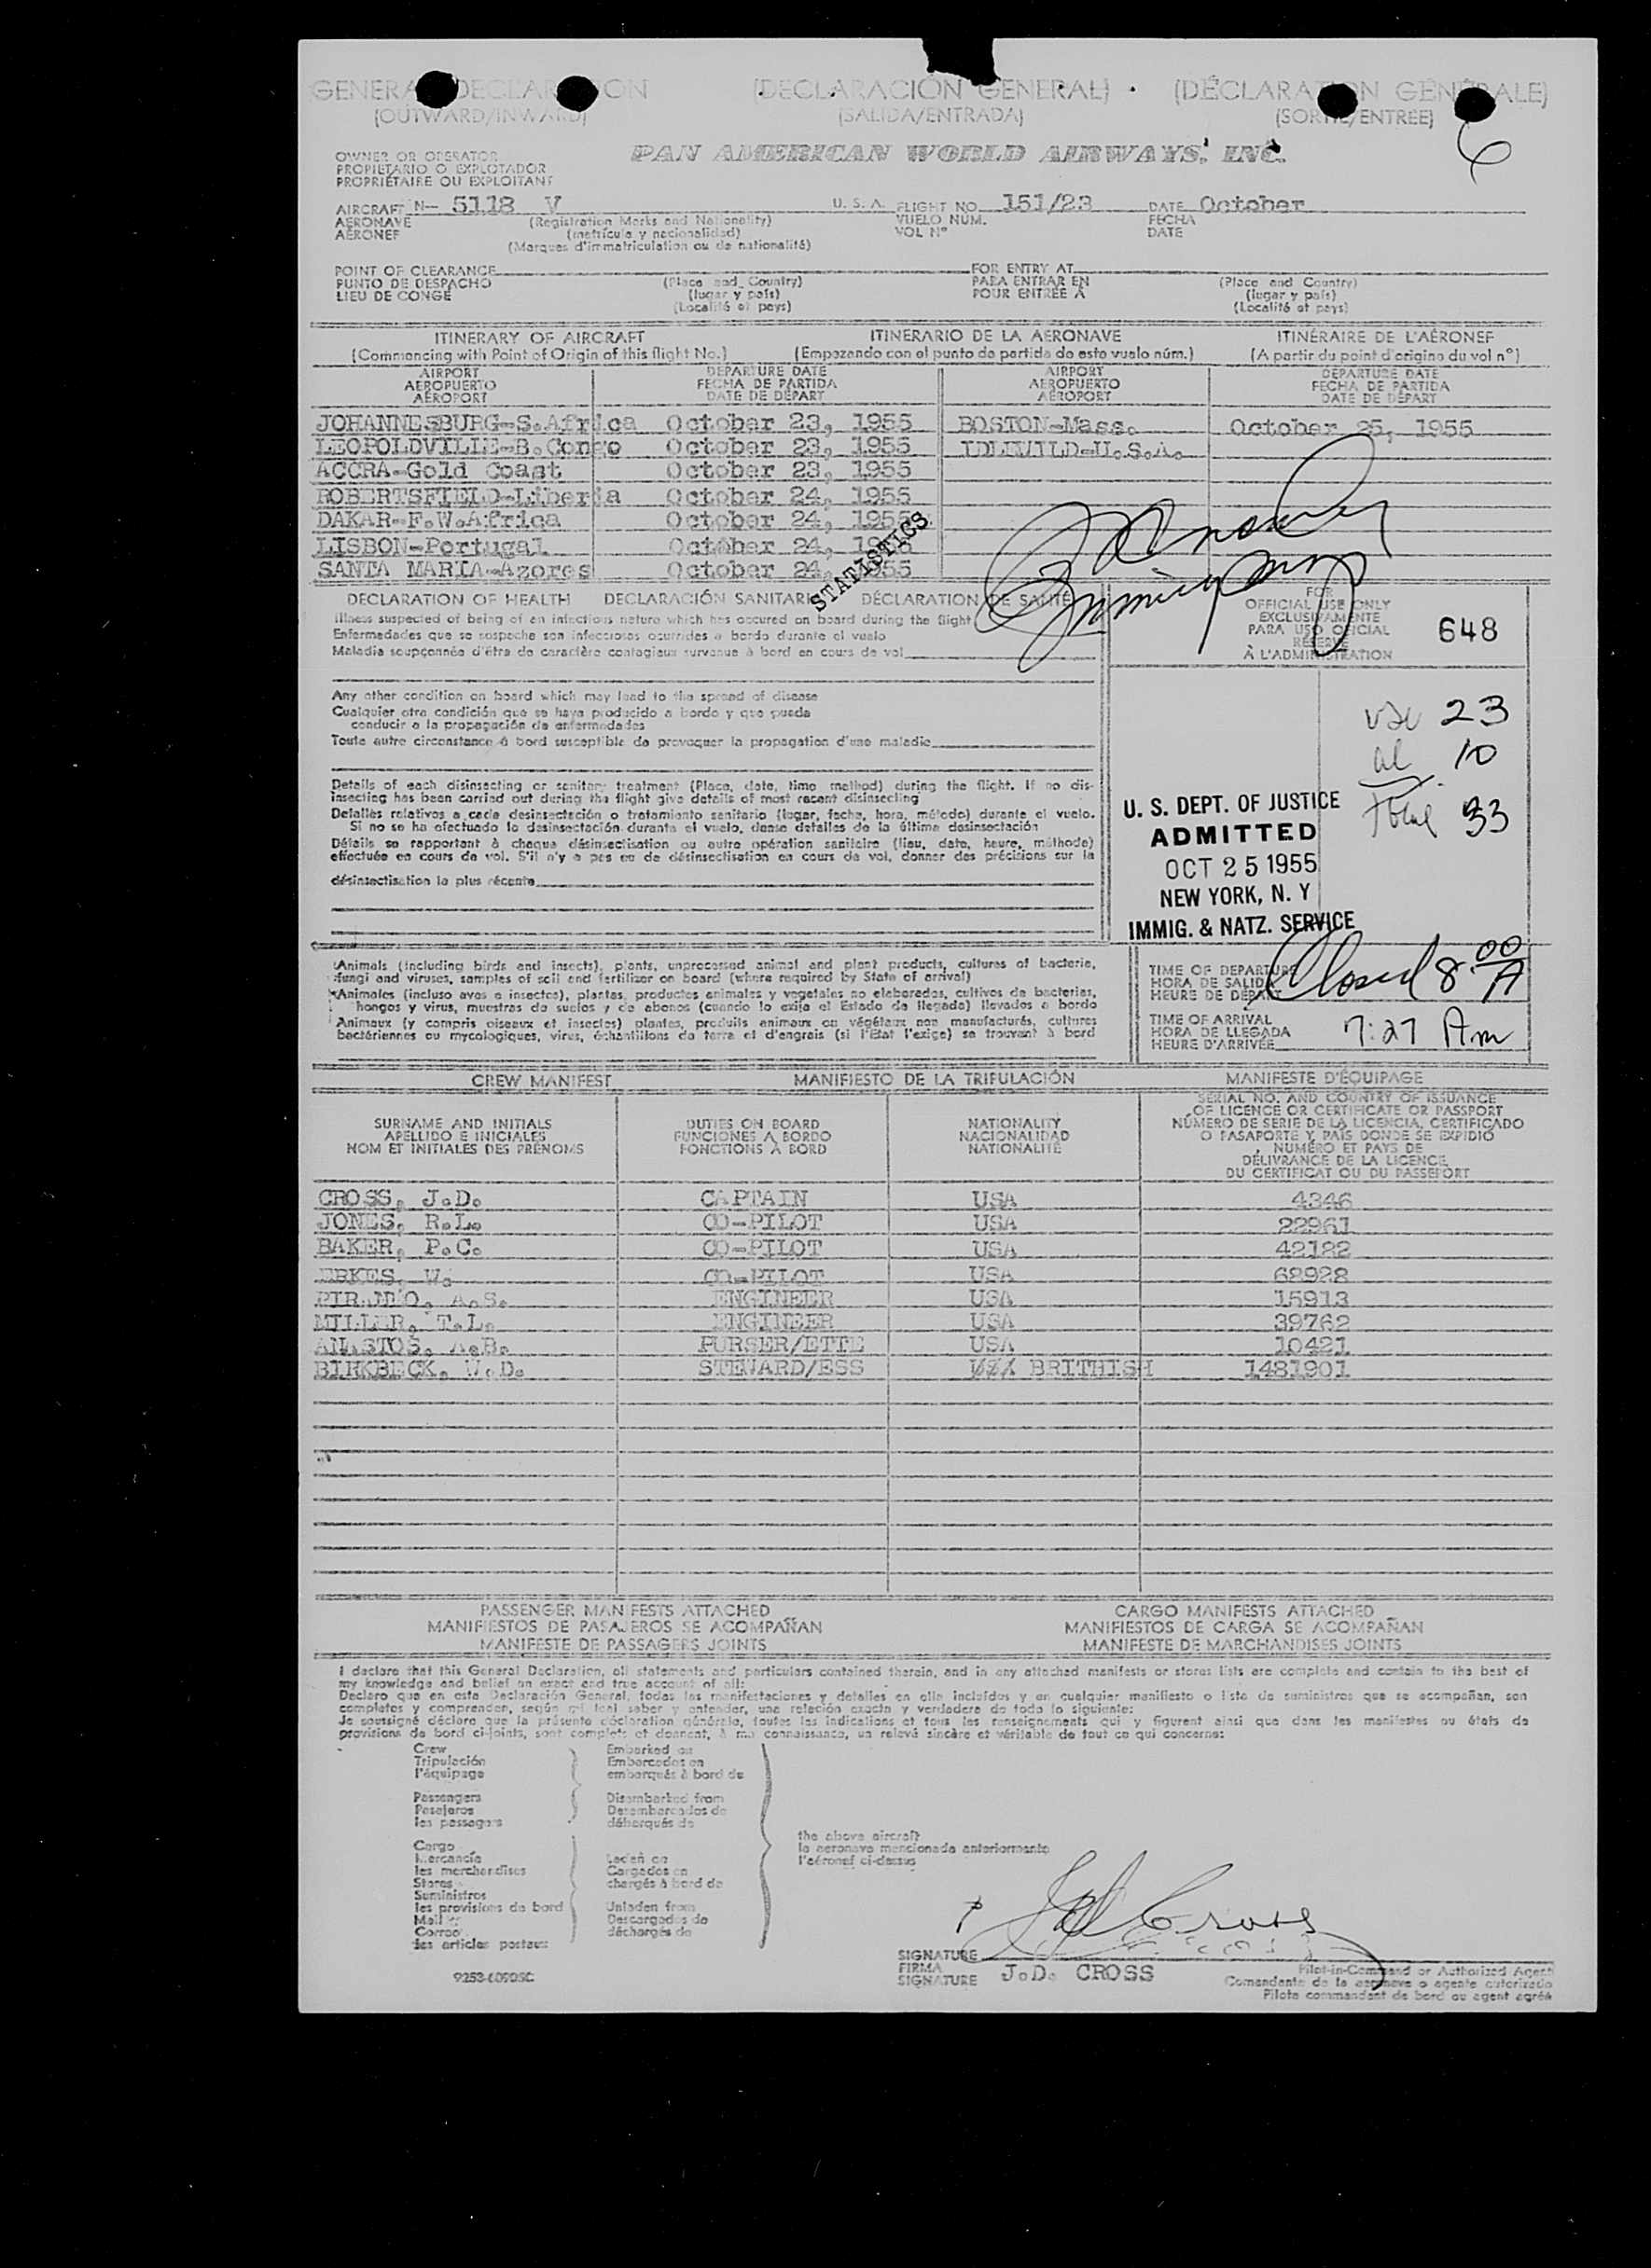 GENERAL DECLARATION (DECLARACIÓN GENERAL) (DÉCLARATION GÉNÉRALE)
(OUTWARD/INWARD) (SALIDA/ENTRADA) (SORTIE/ENTREE)
6
OWNER OR OPERATOR PAN AMERICAN WORLD AIRWAYS, INC.
PROPIETARIO O EXPLOTADOR
PROPRIÉTAIRE OU EXPLOITANT
AIRCRAFT N- 5118 V U. S. A. FLIGHT NO. 151/23 DATE October
AERONAVE (Registration Marks and Nationality) VUELO NÚM. FECHA
AÉRONEF (matrícula y nacionalidad) VOL Nº DATE
(Marques d'immatriculation ou de nationalité)
POINT OF CLEARANCE FOR ENTRY AT
PUNTO DE DESPACHO (Place and Country) PARA ENTRAR EN (Place and Country)
LIEU DE CONGÉ (lugar y país) POUR ENTRÉE À (lugar y país)
(Localité et pays) (Localité et pays)
ITINERARY OF AIRCRAFT ITINERARIO DE LA AERONAVE ITINÉRAIRE DE L'AÉRONEF
(Commencing with Point of Origin of this flight No.) (Empezando con el punto de partida de este vuelo núm.) (A partir du point d'origine du vol nº)
AIRPORT DEPARTURE DATE AIRPORT DEPARTURE DATE
AEROPUERTO FECHA DE PARTIDA AEROPUERTO FECHA DE PARTIDA
AÉROPORT DATE DE DÉPART AÉROPORT DATE DE DÉPART
JOHANNESBURG-S.Africa October 23, 1955 BOSTON-Mass. October 25, 1955
LEOPOLDVILLE-B.Congo October 23, 1955 IDLEWILD-U.S.A.
ACCRA-Gold Coast October 23, 1955
ROBERTSFIELD-Liberia October 24, 1955
DAKAR-F.W.Africa October 24, 1955
LISBON-Portugal October 24, 1955
SANTA MARIA-Azores October 24, 1955
STATISTICS
DECLARATION OF HEALTH DECLARACIÓN SANITARIA DÉCLARATION DE SANTÉ
Illness suspected of being of an infectious nature which has occured on board during the flight
Enfermedades que se sospecha son infecciosas ocurridas a bordo durante el vuelo
Maladie soupçonnée d'être de caractère contagieux survenue à bord en cours de vol
FOR
OFFICIAL USE ONLY
EXCLUSIVAMENTE
PARA USO OFICIAL
RÉSERVÉ
À L'ADMINISTRATION
648
Any other condition on board which may lead to the spread of disease
Cualquier otra condición que se haya producido a bordo y que pueda
conducir a la propagación de enfermedades
Toute autre circonstance à bord susceptible de provoquer la propagation d'une maladie
23
al 10
Total 33
Details of each disinsecting or sanitary treatment (Place, date, time method) during the flight. If no dis-
insecting has been carried out during the flight give details of most recent disinsecting
Detalles relativos a cada desinsectación o tratamiento sanitario (lugar, fecha, hora, método) durante el vuelo.
Si no se ha efectuado la desinsectación durante el vuelo, dense detalles de la última desinsectación
Détails se rapportant à chaque désinsectisation ou autre opération sanitaire (lieu, date, heure, méthode)
effectuée en cours de vol. S'il n'y a pas eu de désinsectisation en cours de vol, donner des précisions sur la
désinsectisation la plus récente
U. S. DEPT. OF JUSTICE
ADMITTED
OCT 25 1955
NEW YORK, N. Y
IMMIG. & NATZ. SERVICE
Animals (including birds and insects), plants, unprocessed animal and plant products, cultures of bacteria,
fungi and viruses, samples of soil and fertilizer on board (where required by State of arrival)
Animales (incluso aves e insectos), plantas, productos animales y vegetales no elaborados, cultivos de bacterias,
hongos y virus, muestras de suelos y de abonos (cuando lo exija el Estado de llegada) llevados a bordo
Animaux (y compris oiseaux et insectes) plantes, produits animaux ou végétaux non manufacturés, cultures
bactériennes ou mycologiques, virus, échantillons de terre et d'engrais (si l'État l'exige) se trouvant à bord
TIME OF DEPARTURE
HORA DE SALIDA Closed 8:00 A
HEURE DE DÉPART
TIME OF ARRIVAL
HORA DE LLEGADA 7:27 Am
HEURE D'ARRIVÉE
CREW MANIFEST MANIFIESTO DE LA TRIPULACIÓN MANIFESTE D'ÉQUIPAGE
SURNAME AND INITIALS DUTIES ON BOARD NATIONALITY SERIAL NO. AND COUNTRY OF ISSUANCE
APELLIDO E INICIALES FUNCIONES A BORDO NACIONALIDAD OF LICENCE OR CERTIFICATE OR PASSPORT
NOM ET INITIALES DES PRÉNOMS FONCTIONS À BORD NATIONALITÉ NÚMERO DE SERIE DE LA LICENCIA, CERTIFICADO
O PASAPORTE Y PAÍS DONDE SE EXPIDIÓ
NUMÉRO ET PAYS DE
DÉLIVRANCE DE LA LICENCE
DU CERTIFICAT OU DU PASSEPORT
CROSS, J.D. CAPTAIN USA 4346
JONES, R.L. CO-PILOT USA 22961
BAKER, P.C. CO-PILOT USA 42122
ERKES, W. CO-PILOT USA 62928
A.S. ENGINEER USA 15913
MILLER, T.L. ENGINEER USA 39762
ANASTOS, A.B. PURSER/ETTE USA 10421
BIRKBECK, W.D. STEWARD/ESS USA BRITHISH 1481901
PASSENGER MANIFESTS ATTACHED CARGO MANIFESTS ATTACHED
MANIFIESTOS DE PASAJEROS SE ACOMPAÑAN MANIFIESTOS DE CARGA SE ACOMPAÑAN
MANIFESTE DE PASSAGERS JOINTS MANIFESTE DE MARCHANDISES JOINTS
I declare that this General Declaration, all statements and particulars contained therein, and in any attached manifests or stores lists are complete and contain to the best of
my knowledge and belief an exact and true account of all:
Declaro que en esta Declaración General, todas las manifestaciones y detalles en ella incluídos y en cualquier manifiesto o lista de suministros que se acompañan, son
completos y comprenden, según mi leal saber y entender, una relación exacta y verdadera de todo lo siguiente:
Je soussigné déclare que la présente déclaration générale, toutes les indications et tous les renseignements qui y figurent ainsi que dans les manifestes ou états de
provisions de bord ci-joints, sont complets et donnent, à ma connaissance, un relevé sincère et véritable de tout ce qui concerne:
Crew Embarked on
Tripulación Embarcados en
l'équipage embarqués à bord de
Passengers Disembarked from
Pasajeros Desembarcados de
les passagers débarqués de
the above aircraft
la aeronave mencionada anteriormente
l'aéronef ci-dessus
Cargo
Mercancía Laden on
les merchandises Cargados en
Stores chargés à bord de
Suministros
les provisions de bord Unladen from
Mail Descargados de
Correo déchargés de
les articles postaux
J D Cross
SIGNATURE
FIRMA J.D. CROSS Pilot-in-Command or Authorized Agent
SIGNATURE Comandante de la aeronave o agente autorizado
Pilote commandant de bord ou agent agréé
9253-60905C